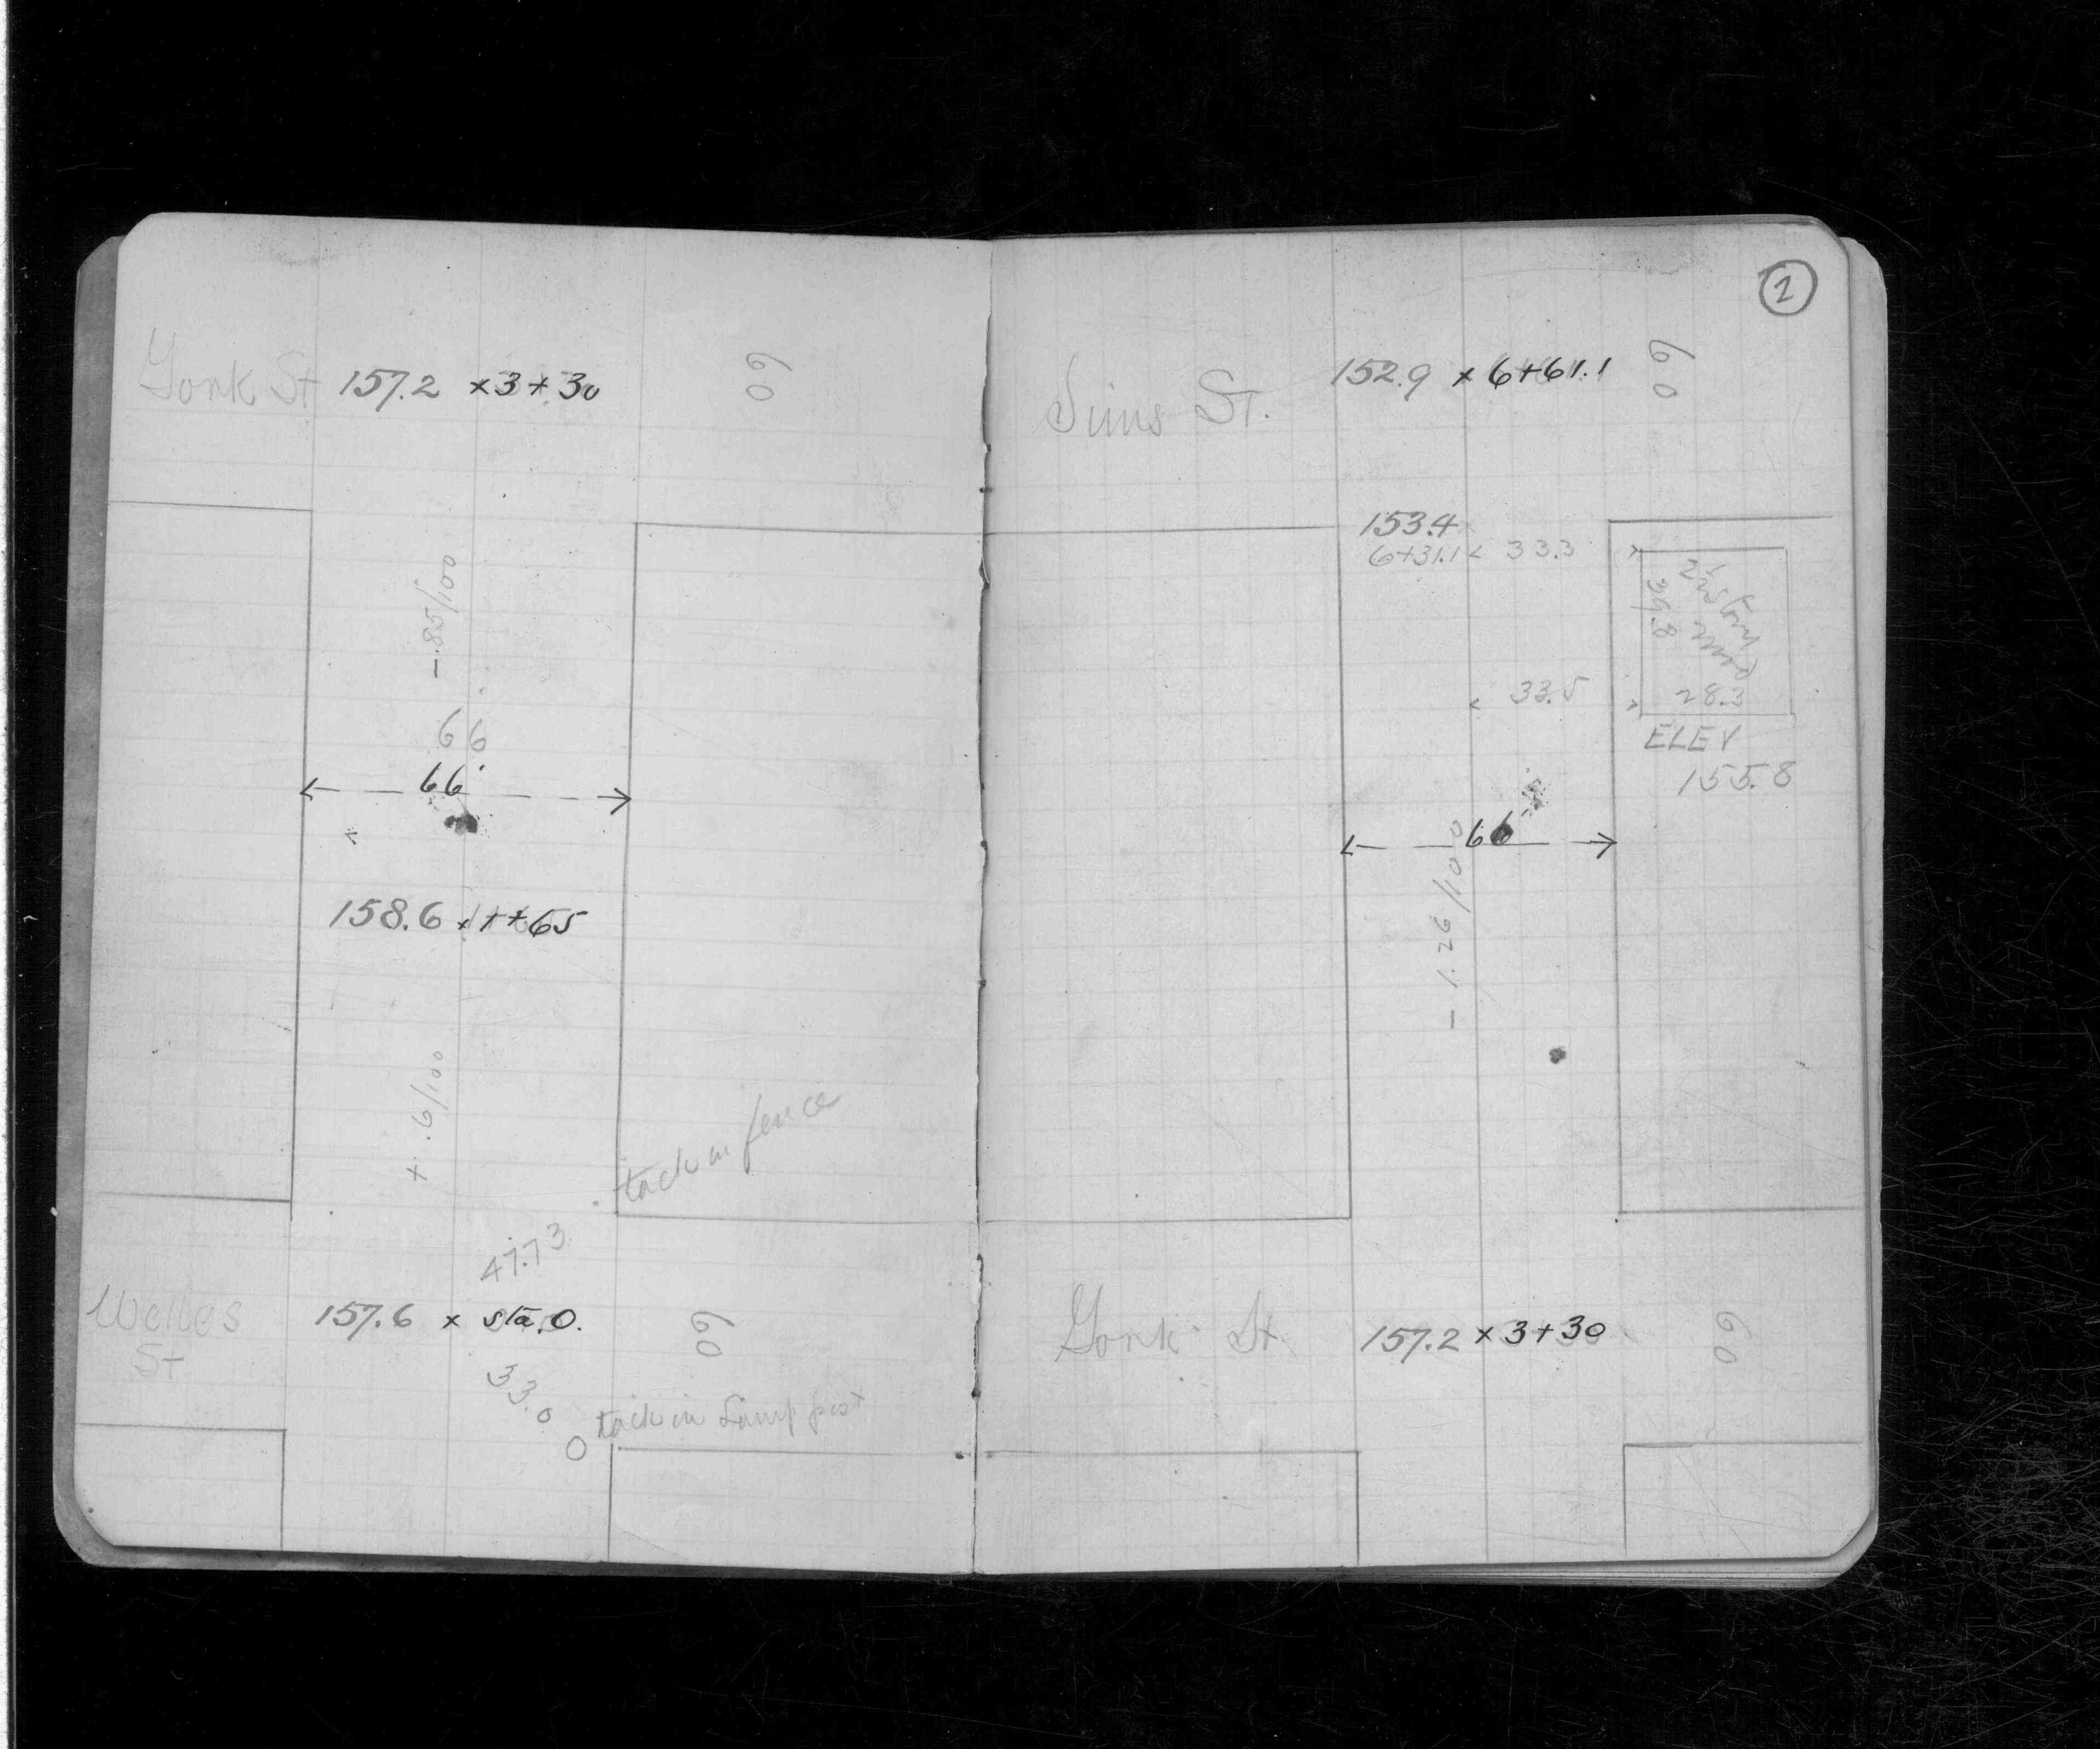 York St 157.2 x 3+30 60
-.85/100
66
66'
158.6 x 1+65
+ .6/100
tack in fence
47.73
Welles St 157.6 x sta. 0. 60
33.0
tack in Lamp post
1
Sims St. 152.9 x 6+61.1 60
153.4
6+31.1 < 33.3
2½ Story
39.8
28.2
33.5
ELEV
155.8
66'
-1.26/100
York St 157.2 x 3+30 60